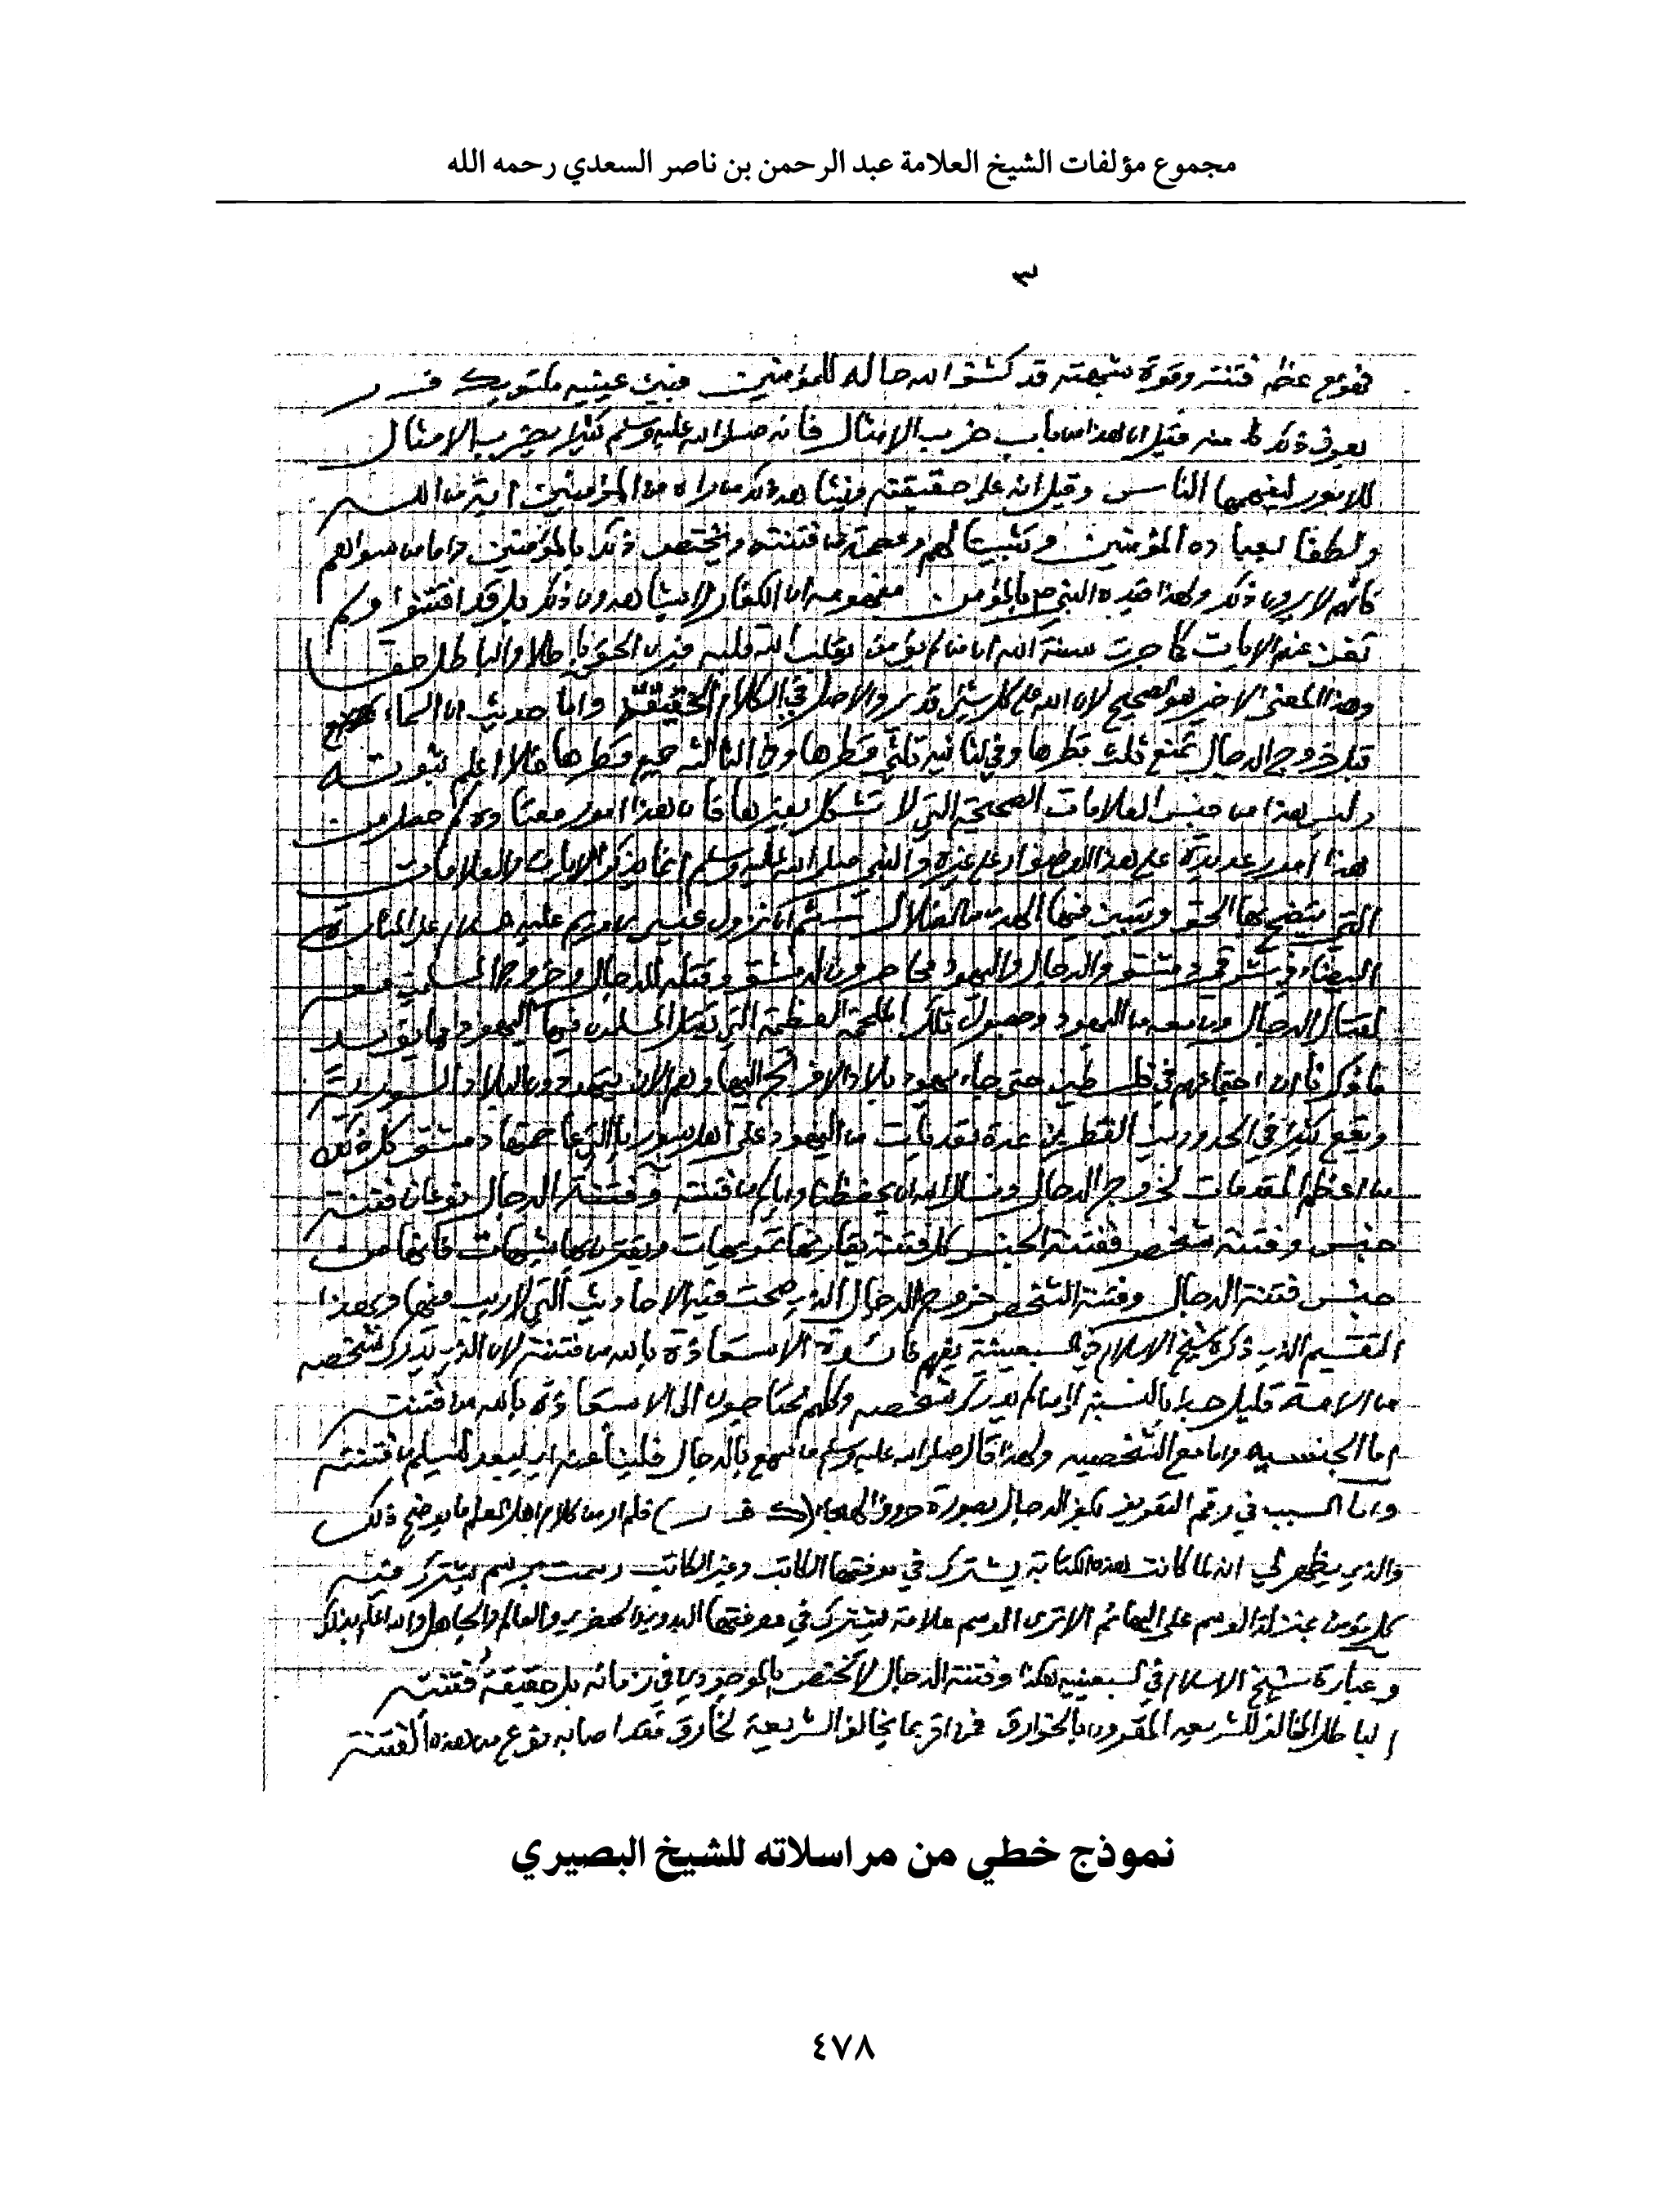 مجموع مؤلفات الشيخ العلامة عبد الرحمن بن ناصر السعدي رحمه الله
٣
فهو مع عظم فتنته وقوة شبهته قد كشف الله حاله للمؤمنين فبين عينيه مكتوب ك ف ر
يعرف ذلك كل مؤمن فقيل ان هذا من باب ضرب الامثال فانه صلى الله عليه وسلم كثيرا يضرب الامثال
للامور ليفهمها الناس وقيل انه على حقيقته فيشاهد ذلك من راه من المؤمنين اية من الله
ولطفا بعباده المؤمنين وتثبيتا لهم وعصمة من فتنته ويختص ذلك بالمؤمنين واما من سواهم
فانهم لا يرون ذلك ولهذا قيده النبي ص بالمؤمن مفهومه ان الكفار لا يشاهدون ذلك بل قد افتتنوا ولم
تغن عنهم الايات كما جرت سنة الله ان من لم يؤمن يقلب الله قلبه فيرى الحق باطلا والباطل حقا
وهذا المعنى الاخير هو الصحيح لان الله على كل شيء قدير والاصل في الكلام الحقيقة واما حديث ان السماء
قبل خروج الدجال تمنع ثلث قطرها وفي الثانية ثلثي قطرها وفي الثالثة جميع قطرها فلا اعلم ثبوته
وليس هذا من جنس العلامات الصحيحة التي لا تشكل بغيرها فان هذا امور معتادة كم حصل من
هذا امور عديدة على هذا الوصف او على غيره والنبي صلى الله عليه وسلم انما يذكر الايات والعلامات
التي يتضح بها الحق ويتبين فيها الهدى من الضلال ثم ان نزول عيسى بن مريم عليه السلام على المنارة
البيضاء في شرقي دمشق والدجال واليهود محاصرون لدمشق وقتله للدجال وخروج المسلمين معه
لقتال الدجال ومن معه من اليهود وحصول تلك الملحمة العظيمة التي يقتل المسلمون فيها اليهود مما يؤيد
ما ذكرنا ان اجتماعهم في فلسطين حتى جاء يهود بلاد الافرنج اليها وهم الان يتهددون البلاد السورية
ويقع كثيرا في الحدود بين القطرين عدة تعديات من اليهود على اهل سوريا التي عاصمتها دمشق كل ذلك
من اعظم المقدمات لخروج الدجال ونسال الله ان يحفظنا واياكم من فتنته وفتنة الدجال نوعان فتنة
جنس وفتنة شخص ففتنة الجنس كل فتنة يقارنها تمويهات ويقترن بها شبهات فانها من
جنس فتنة الدجال وفتنة الشخص خروج الدجال الذي صحت فيه الاحاديث التي لا ريب فيها وبهذا
التقسيم الذي ذكره شيخ الاسلام في السبعينية يفهم فائدة الاستعاذة بالله من فتنته لان الذي يدرك شخصه
من الامة قليل جدا بالنسبة الى من لم يدرك شخصه وكلهم محتاجون الى الاستعاذة بالله من فتنته
اما الجنسيه واما مع الشخصيه ولهذا قال صلى الله عليه وسلم من سمع بالدجال فلينأ عنه اي ليبعد ليسلم من فتنته
واما السبب في رقم التعريف بكفر الدجال بصورة حروف الهجاء (ك ف ر) فلم ار من كلام اهل العلم ما يوضح ذلك
والذي يظهر لي انه لما كانت هذه الكتابة يشترك في معرفتها الكاتب وغير الكاتب رسمت برسم يشترك فيه
كل مؤمن بمنزلة الوسم على البهائم الا ترى الوسم علامة يشترك في معرفتها البدوي والحضري والعالم والجاهل والله اعلم بذلك
وعبارة شيخ الاسلام في السبعينيه هكذا وفتنة الدجال لا تختص بالموجودين في زمانه بل حقيقة فتنته
الباطل المخالف للشريعه المقرون بالخوارق فمن اقر بما يخالف الشريعة لخارق فقد اصابه نوع من هذه الفتنة
نموذج خطي من مراسلاته للشيخ البصيري
٤٧٨